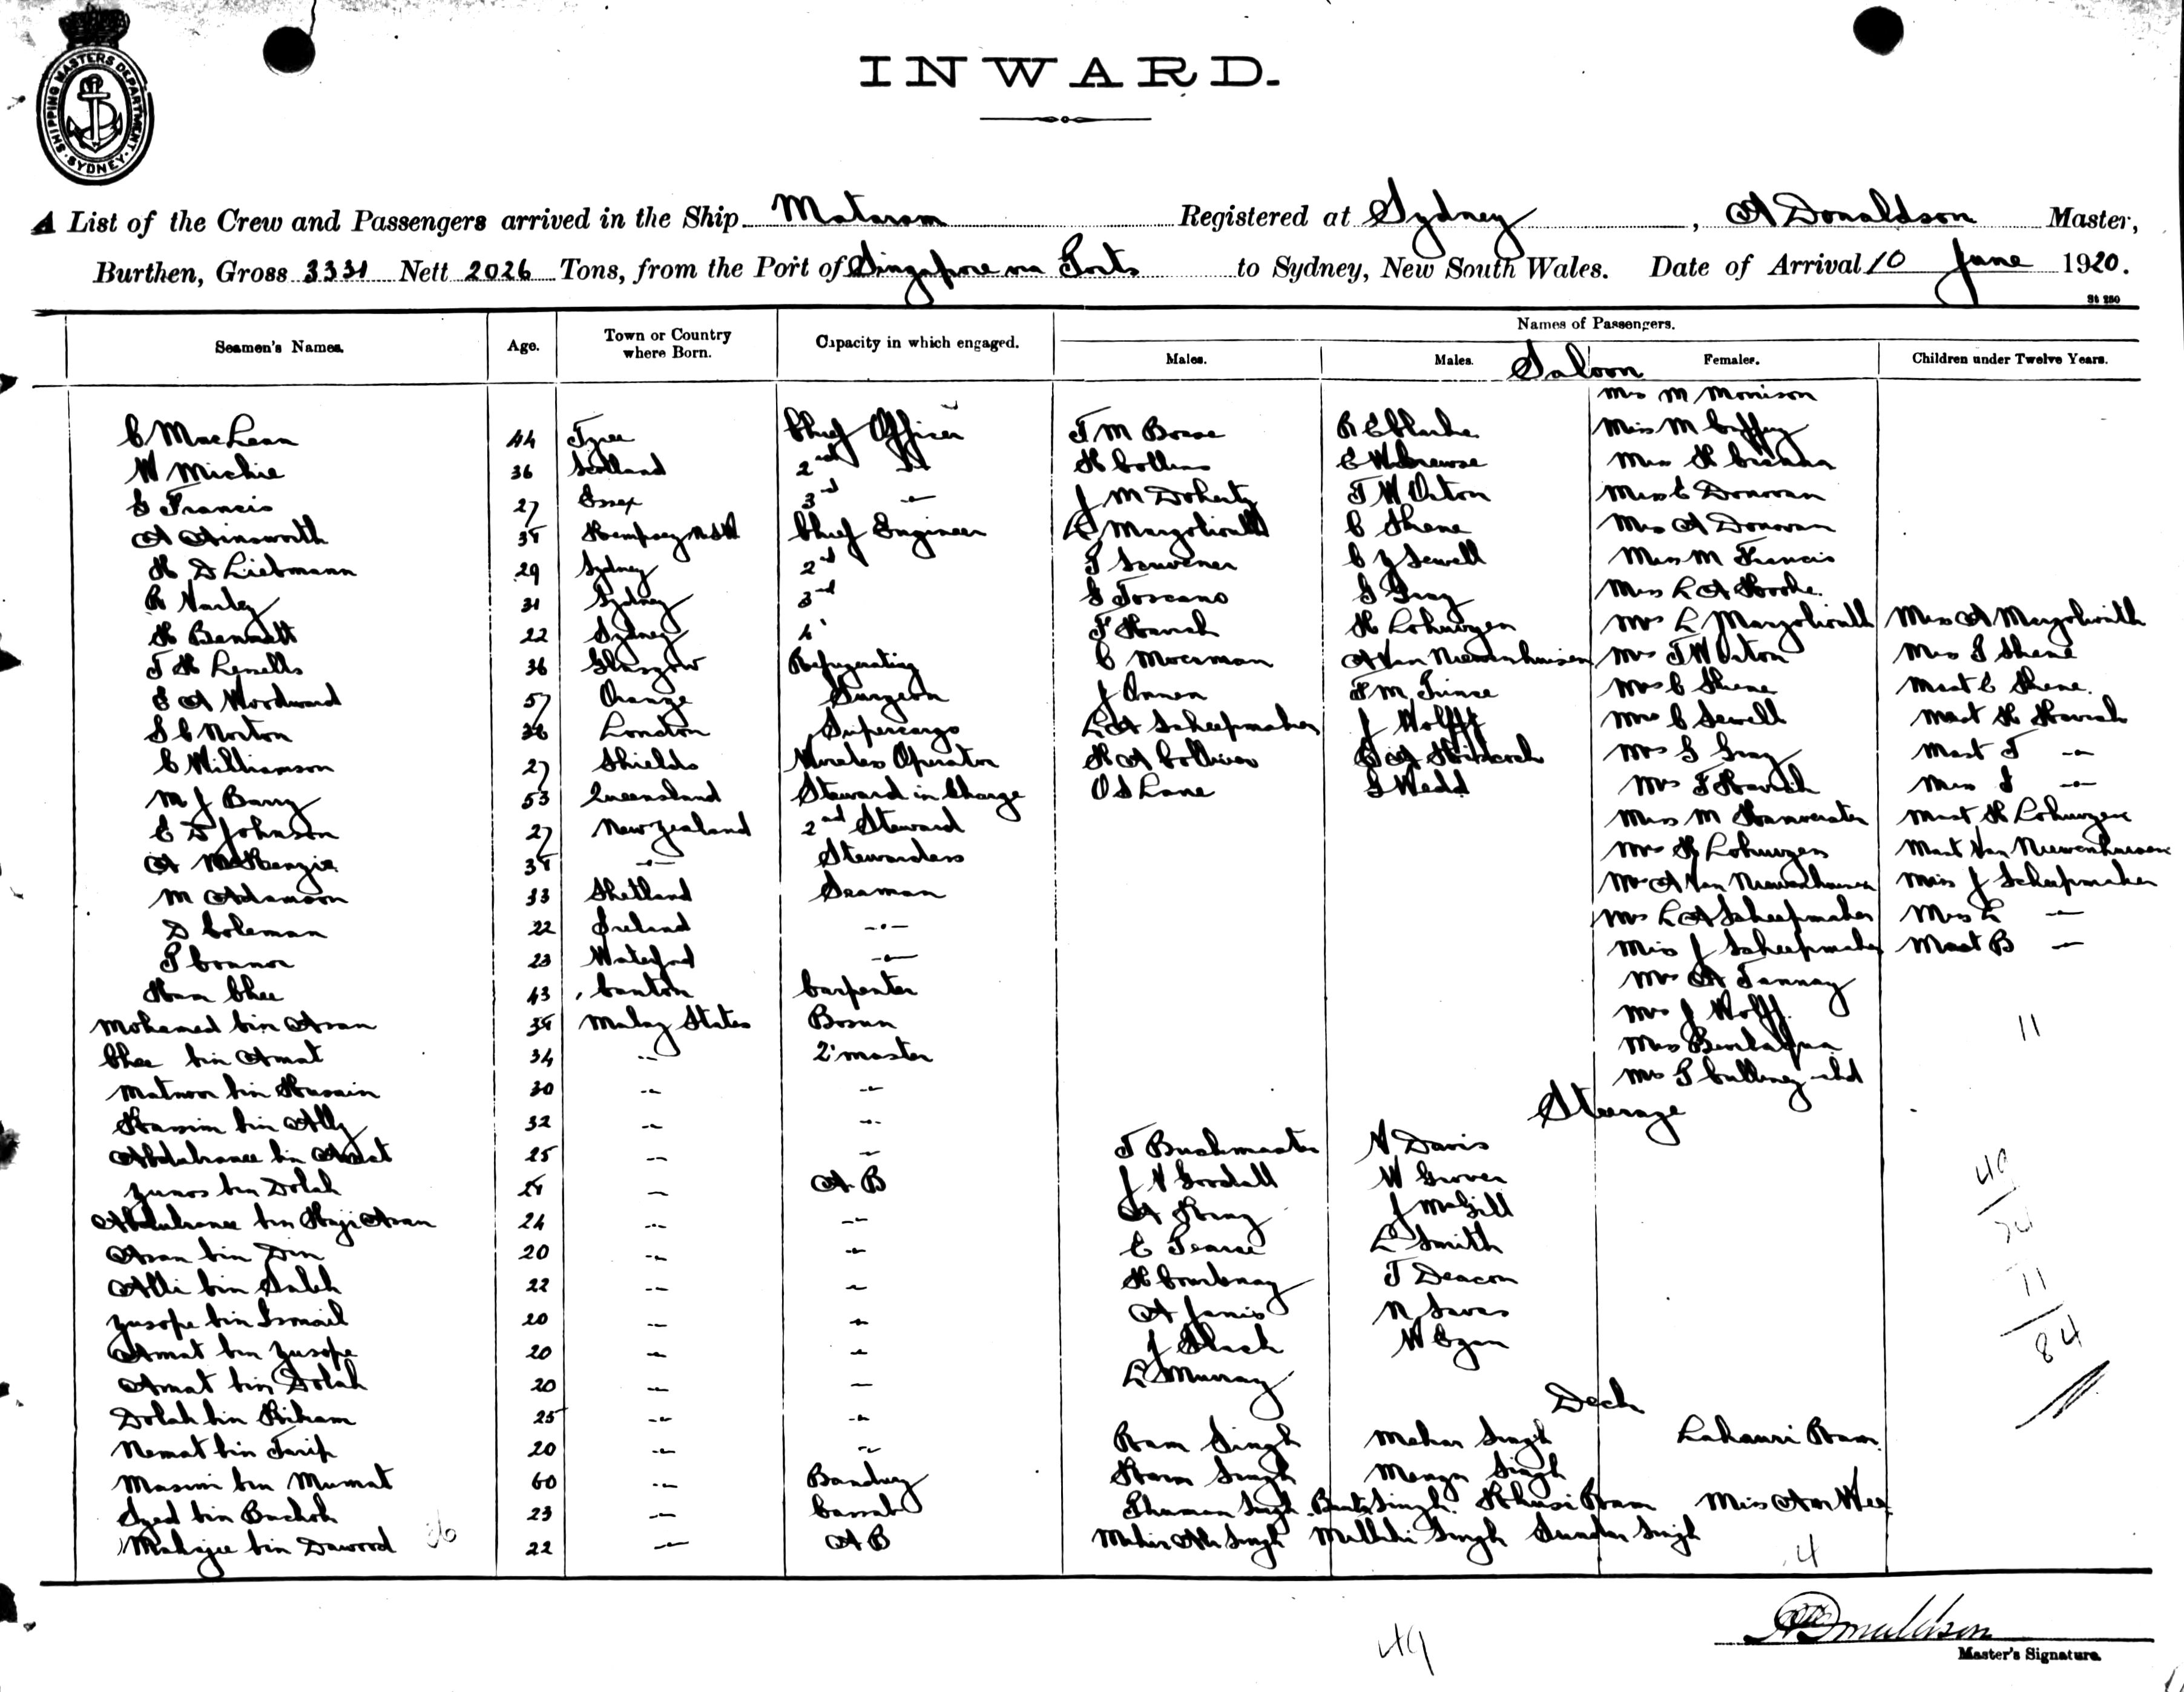 SHIPPING MASTERS DEPARTMENT. SYDNEY
INWARD.
A List of the Crew and Passengers arrived in the Ship Mataram Registered at Sydney, A Donaldson Master,
Burthen, Gross 3331 Nett 2026 Tons, from the Port of Singapore via Ports to Sydney, New South Wales. Date of Arrival 10 June 1920.
St 280
Names of Passengers.
Seamen's Names. Age. Town or Country where Born. Capacity in which engaged. Males. Males. Females. Children under Twelve Years.
Saloon
Mrs M Morrison
C MacLean 44 Tyree Chief Officer J M Bowe R E Clarke Miss M Caffey
W Michie 36 Scotland 2nd H Collins E W Browse Miss H
S Francis 27 Essex 3rd J M Doherty T W Orton Miss E Donovan
A Ainsworth 35 Kempsey NSW Chief Engineer L Margoliouth C Shene Miss A Donovan
H D Liebmann 29 Sydney 2nd Souvener C J Sewell Miss M Francis
R Varley 31 Sydney 3rd Toscano S Gray Miss L A Hooke
H Bennett 22 Sydney 4 F Hannah H Lohuizen Mrs L Margoliouth Miss A Margoliouth
J H Lenells 36 Glasgow Refrigerating C Moerman A Van Nieuwenhuisen Mrs T W Orton Miss S Shene
E A Woodward 57 Orange Surgeon J Onnen F M Prince Mrs C Shene Mast C Shene
S C Norton 36 London Supercargo L A Scheepmaker J Wolff Mrs C Sewell Mast H
C Williamson 27 Shields Wireless Operator H A Colliver Mrs S Gray Mast T -"-
M J Barry 53 Queensland Steward in Charge O S Lane S Wedd Mrs F Miss -"-
E D Johnson 27 New Zealand 2nd Steward Miss M Mast H Lohuizen
A McKenzie 35 -"- Stewardess Mrs H Lohuizen Mast Van Nieuwenhuisen
M Adamson 33 Shetland Seaman Mrs A Van Nieuwenhuisen Miss J Scheepmaker
D Coleman 22 Ireland -"- Mrs L A Scheepmaker Miss L -"-
P Connor 23 Waterford -"- Miss J Scheepmaker Mast B -"-
Ham Chee 43 Canton Carpenter Mrs A Tannay
Mohamed bin Asan 35 Malay States Bosun Mrs J Wolff 11
Chee bin Amat 34 -"- 2 master Miss
Matnoor bin Husain 30 -"- -"- Mrs
Kassim bin Ally 32 -"- -"- Steerage
bin 25 -"- -"- T Bushmaster N Davis
Yunos bin Dolah -"- A B J N Goodall W Grover 49
bin Haji Asan 24 -"- -"- A J McGill 24
Asan bin Din 20 -"- -"- E Pearce L Smith
Alli bin Saleh 22 -"- -"- H Courtenay T Deacon 11
Yusope bin Ismail 20 -"- -"- A Janis N Savas
Amat bin Yusope 20 -"- -"- J Slack W Egan 84
Amat bin Dolah 20 -"- -"- L Murray
Deck
Dolah bin 25 -"- -"-
Nemat bin Tarip 20 -"- -"- Ram Singh Mehar Singh Lahauri Ram
Masim bin Mumat 60 -"- Bandary Karm Singh Manga Singh
Syed bin Bachok 23 -"- Cassab Singh Singh Khusi Ram Miss Am Wee
bin Dawood 36 22 -"- A B Singh Singh Sundar Singh
4
49
A Donaldson
Master's Signature.